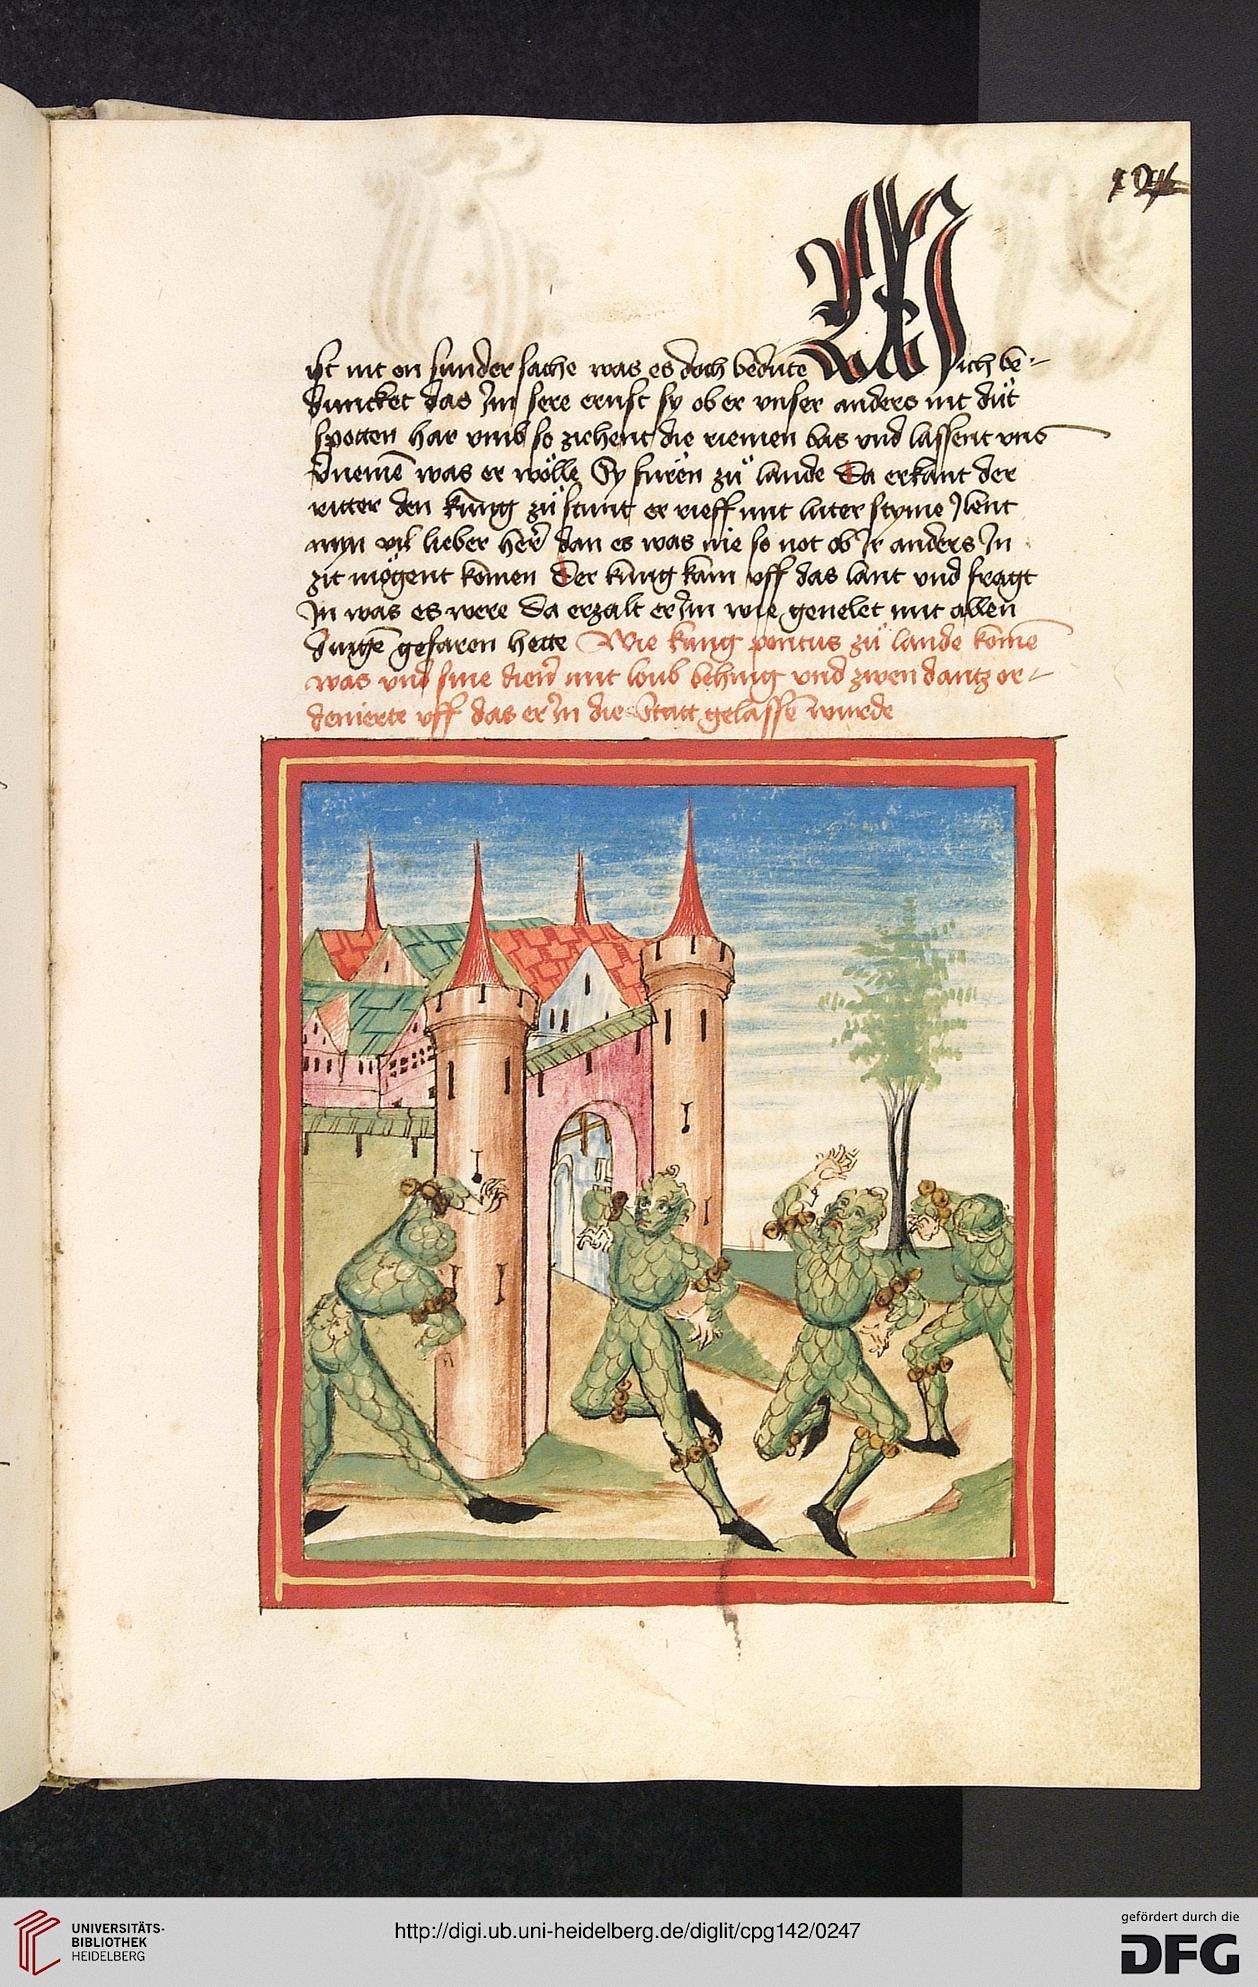 ist nit on sunder sache was es doch bedute Mich be-
duncket das Im sere ernst sy ob er unser anders nit düt
spotten har umb so ziehent die riemen bas und lassent uns
vnemē was er wölle Sy fůren zů lande Da erkant der
ritter den kūng zů stunt er rieff mit luter styme Ilent
myn vil lieber herr dan es was nie so not ob Ir anders In
zit mögent komen Der kung kam uff das lant und fragt
In was es were Da erzalt er Im wie genelet mit allen
dingē gefaren hette Wie kung pontus zů lande komē
was und sine dienr mit loub behing und zwen dantz or-
denierte uff das er In die Statt gelassē wurde
UNIVERSITÄTS-
BIBLIOTHEK
HEIDELBERG
http://digi.ub.uni-heidelberg.de/diglit/cpg142/0247
gefördert durch die
DFG